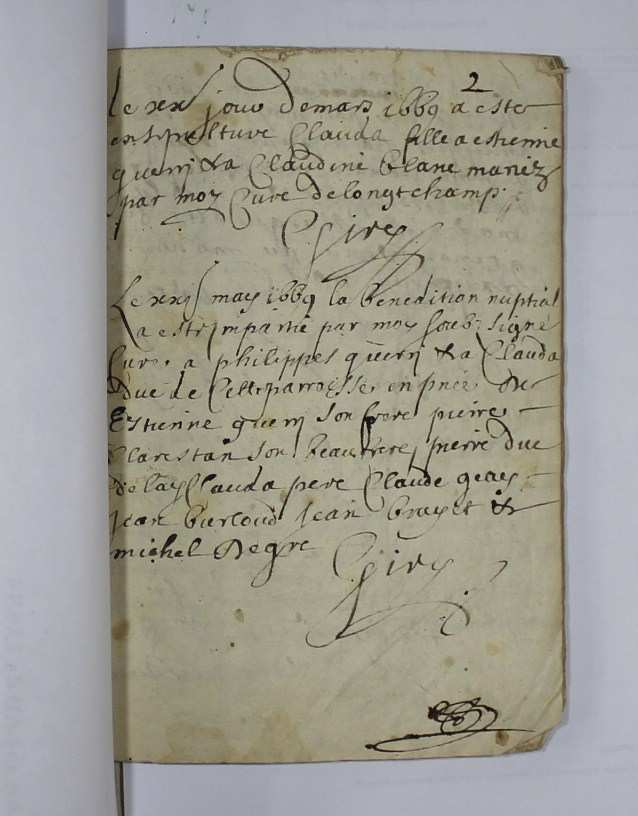 2
Le xx jour de mars 1669 a este
ensepulture Clauda fille a estienne
guerin & a Claudine blanc mariez
par moy Cure de longtchamp
Girs
Le may 1669 la benedition nuptial
a este impartie par moy soubsigné
Cure a philippes guerin & a Clauda
duc de Cette parroisse en pnce de
Estienne guerin son frere pierre
Clarestan son beaufrere, pierre duc
de lad Clauda pere Claude geay
Jean burloud Jean brayet &
michel Degre